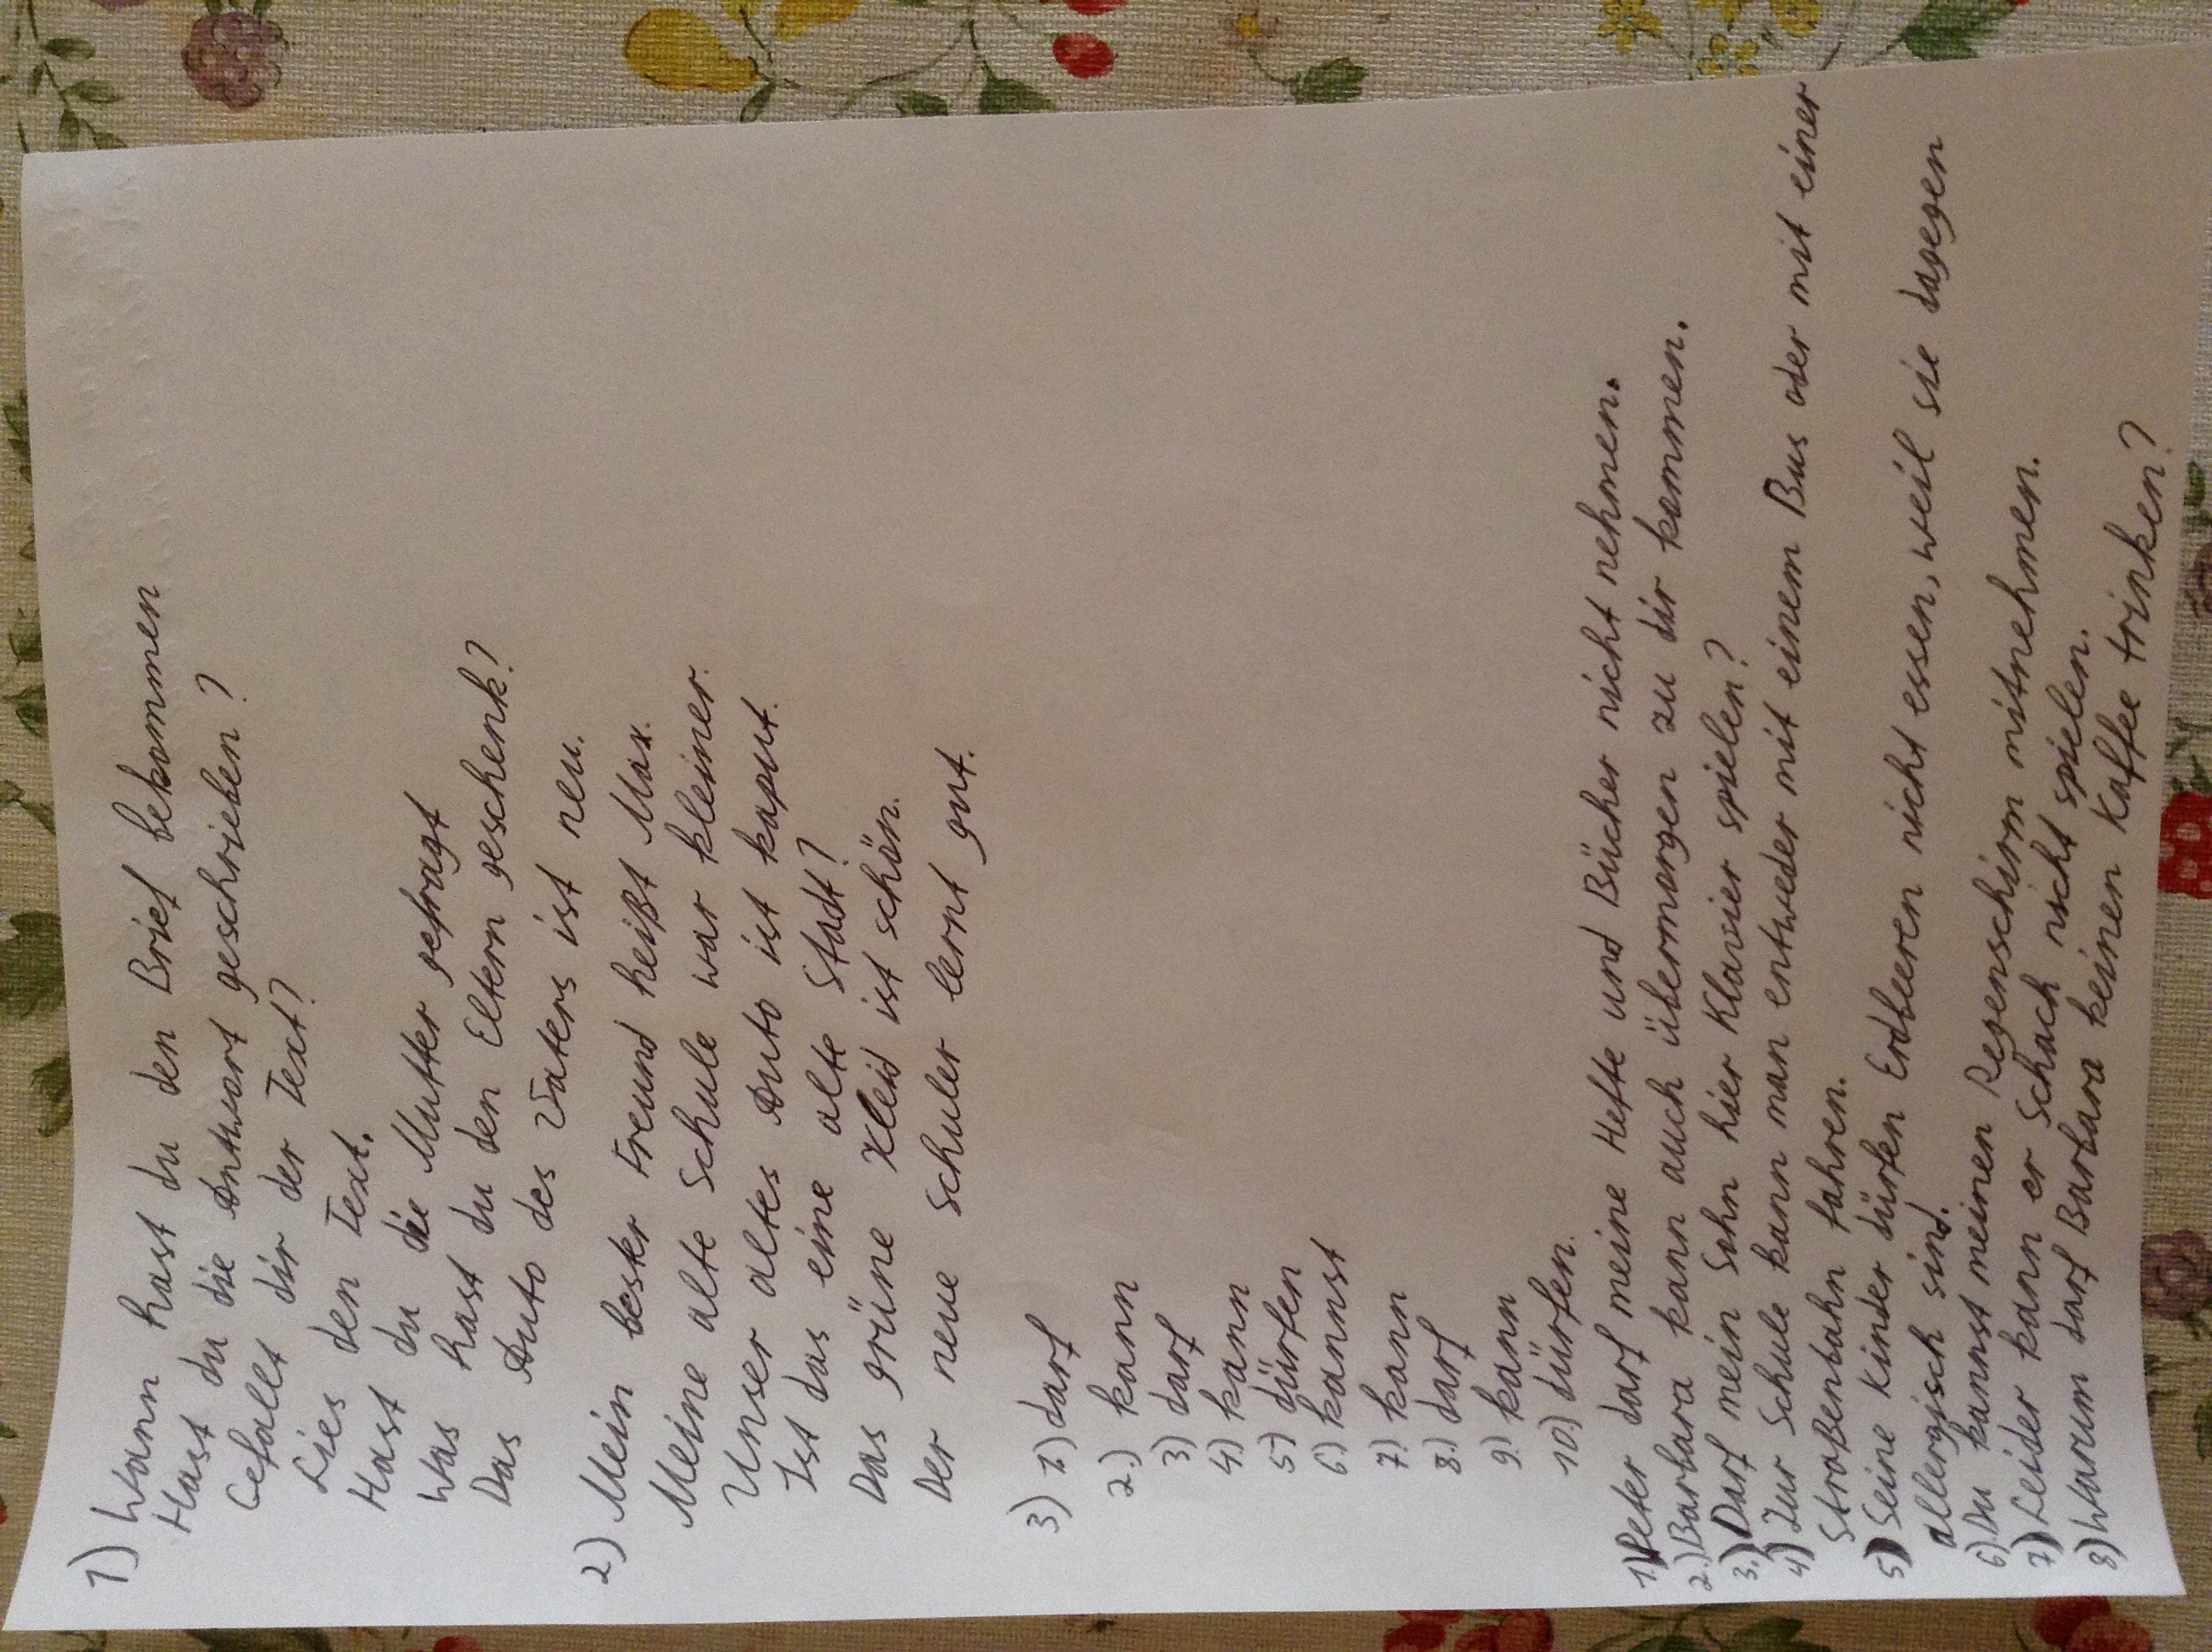 1) Wann hast du den Brief bekommen
Hast du die Antwort geschrieben?
Gefallt dir der Text?
Lies den Text.
Hast du die Mutter gefragt
Was hast du den Eltern geschenk?
Das Auto des Vaters ist neu.
2) Mein bester Freund heißt Max.
Meine alte Schule war kleiner.
Unser altes Auto ist kaput.
Ist das eine alte Stadt?
Das grüne Kleid ist schön.
Der neue Schuler lernt gut.
3) 1) darf
2.) kann
3) darf
4) kann
5) dürfen
6) kannst
7.) kann
8.) darf
9.) kann
10.) dürfen.
1.) Peter darf meine Hefte und Bücher nicht nehmen.
2.) Barbara kann auch übermorgen zu dir kommen.
3.) Darf mein Sohn hier Klavier spielen?
4) Zur Schule kann man entweder mit einem Bus oder mit einer
Straßenbahn fahren.
5) Seine Kinder dürfen Erdbeeren nicht essen, weil sie dagegen
allergisch sind.
6) Du kannst meinen Regenschirm mitnehmen.
7) Leider kann er Schach nicht spielen.
8) Warum darf Barbara keinen Kaffee trinken?